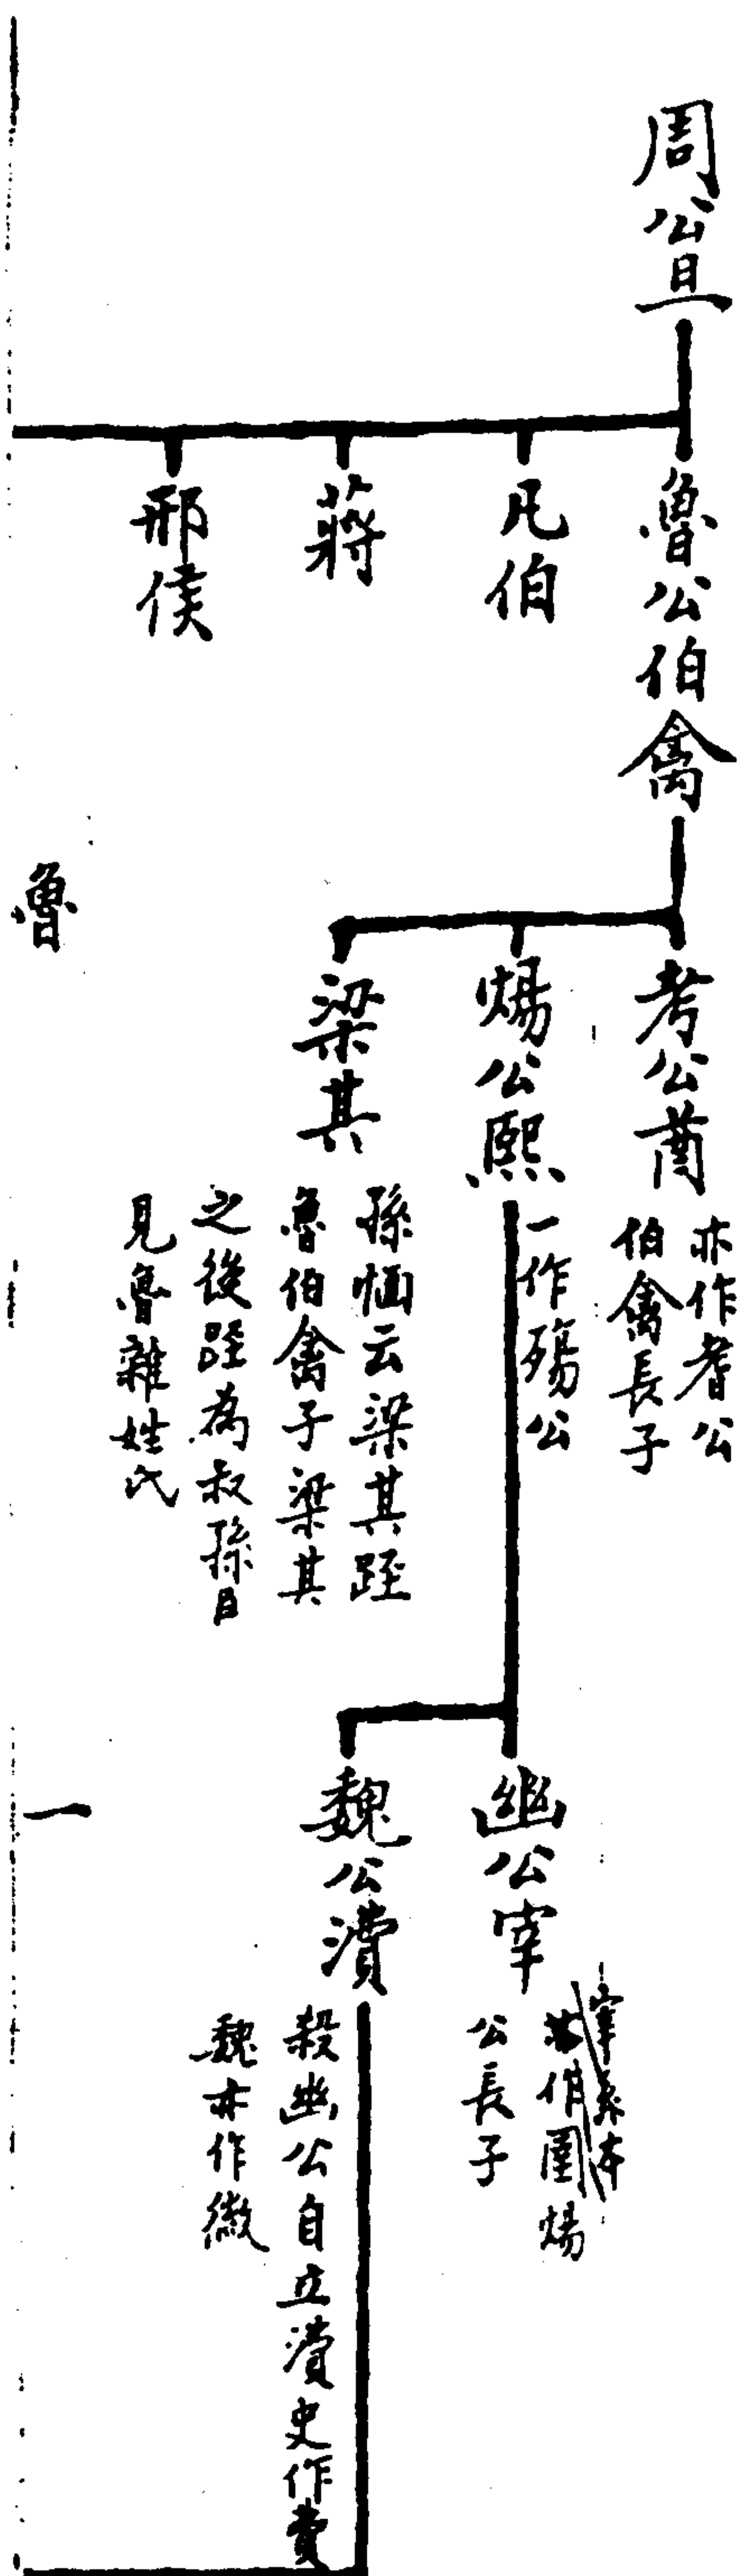 周公旦
魯公伯禽
凡伯
蔣
邢侯
考公酋
亦作耆公
伯禽長子
煬公熙
一作殤公
梁其
孫愐云梁其踁
魯伯禽子梁其
之後踁為叔孫臣
見魯雜姓氏
幽公宰
宰系本
圉煬
公長子
魏公濆
殺幽公自立濆史作費
魏亦作微
魯
一